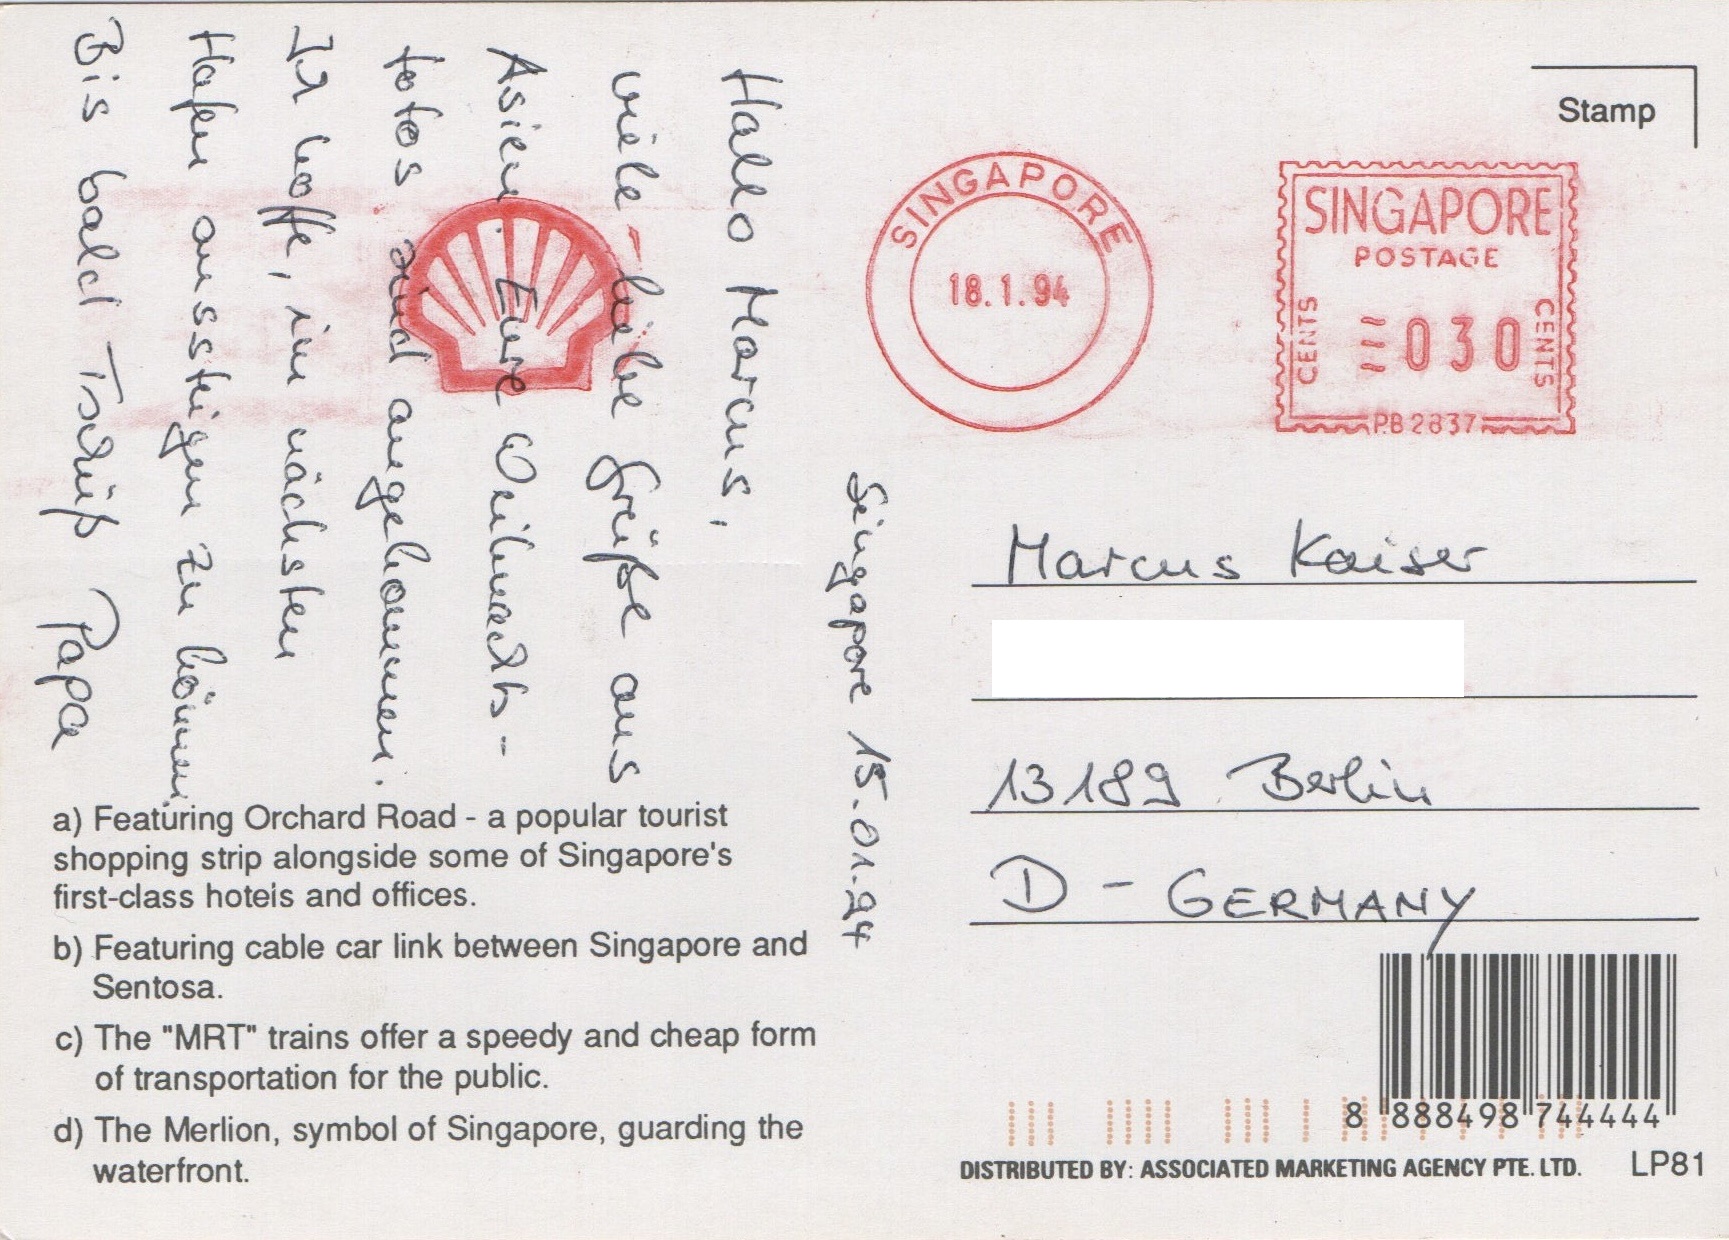 Singapore 15.01.94
Hallo Marcus,
viele liebe Grüße aus
Asien. Eure Weihnachts-
fotos sind angekommen.
Ich hoffe, im nächsten
Hafen aussteigen zu können
Bis bald Tschüß Papa
a) Featuring Orchard Road - a popular tourist
shopping strip alongside some of Singapore's
first-class hotels and offices.
b) Featuring cable car link between Singapore and
Sentosa.
c) The "MRT" trains offer a speedy and cheap form
of transportation for the public.
d) The Merlion, symbol of Singapore, guarding the
waterfront.
Stamp
SINGAPORE
18.1.94
SINGAPORE
POSTAGE
CENTS
030
CENTS
PB2837
Marcus Kaiser
13189 Berlin
D - GERMANY
8 888498 744444
DISTRIBUTED BY: ASSOCIATED MARKETING AGENCY PTE. LTD.
LP81